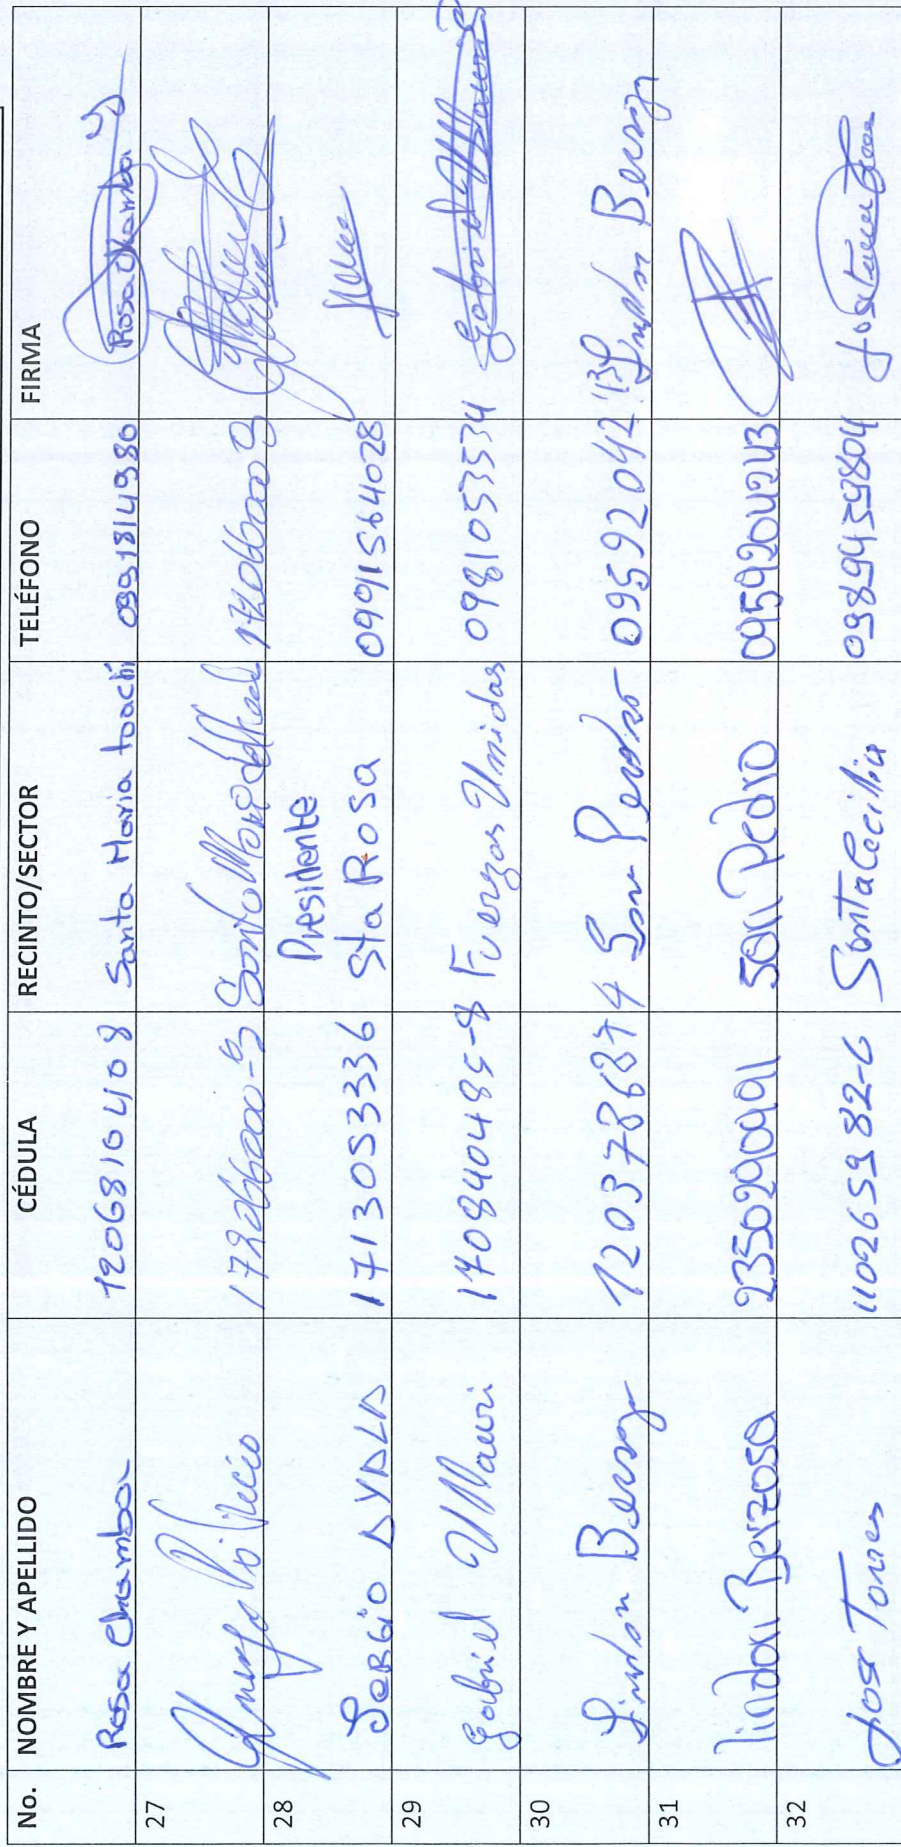 No. NOMBRE Y APELLIDO CÉDULA RECINTO/SECTOR TELÉFONO FIRMA
Rosa Chamba 1206816408 Santa Maria toachi 0991814980 Rosa Chamba
27
28 Presidente
Sergio AYALA 1713053336 Sta Rosa 0991564028
29 Gabriel 170840485-8 Fuerzas Unidas 0981053534 Gabriel
30 Lindon 1203786874 San Pedro 0959204213 Lindon
31 lindon Berzosa 2350290991 San Pedro 0959204243
32 Jose Torres 110265982-6 Santa Cecilia 0989459804 Jose Torres